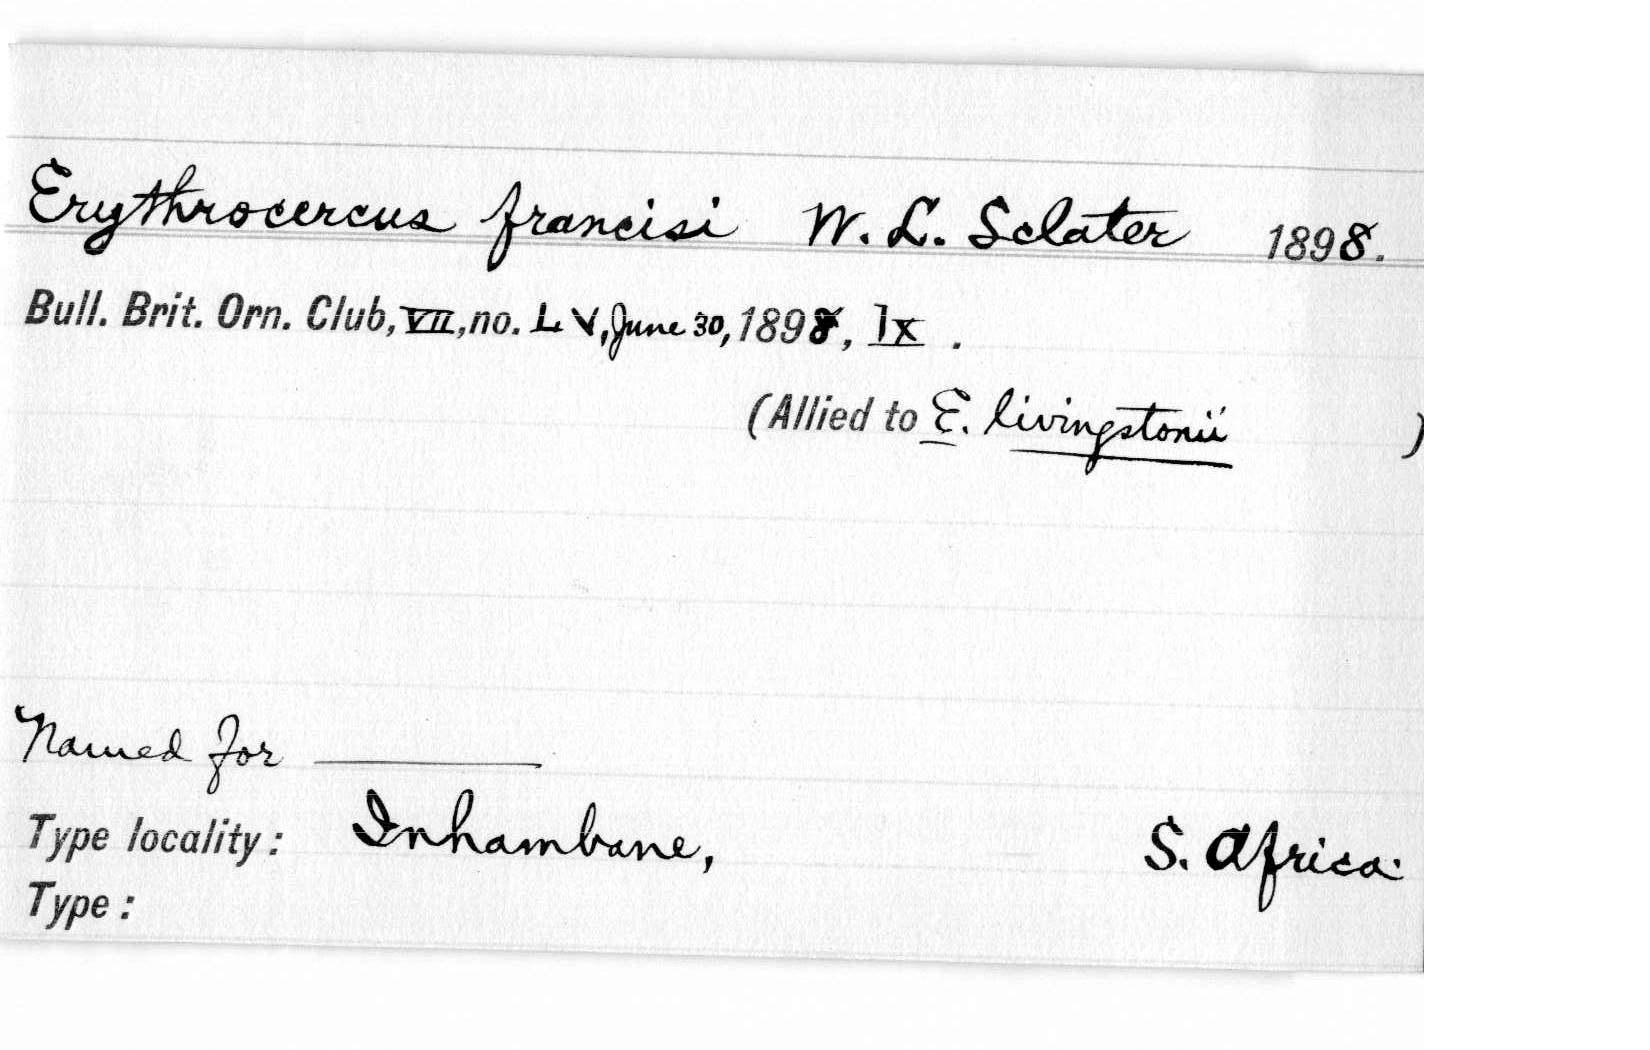 Erythrocercus francisi W. L. Sclater 1898.
Bull. Brit. Orn. Club, VII, no. LV, June 30, 1898, lx .
(Allied to E. livingstonii )
Named for
Type locality: Inhambane, S. Africa.
Type: